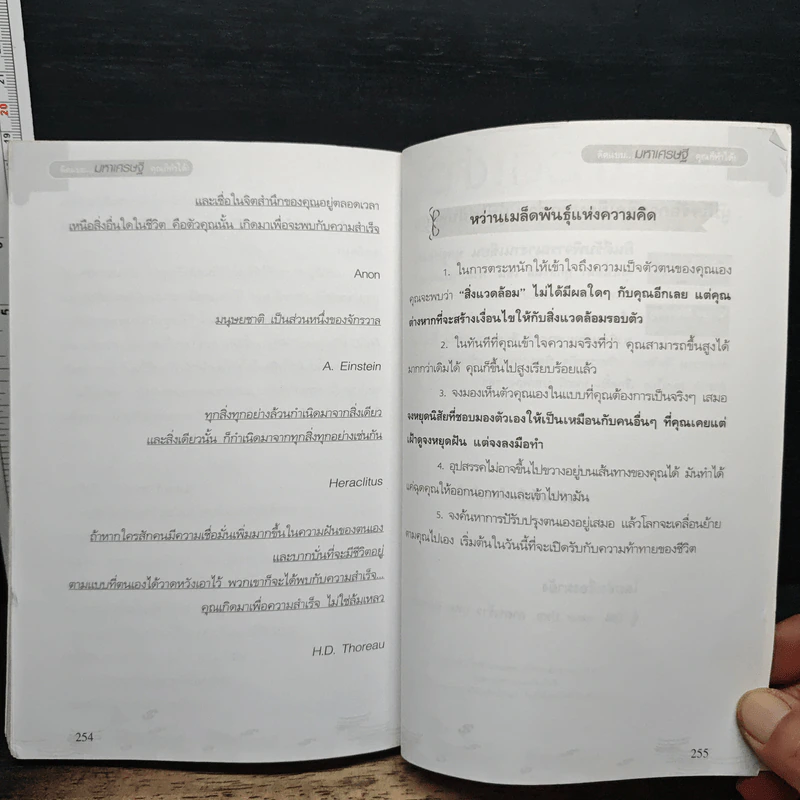 คิดแบบ... มหาเศรษฐี คุณก็ทำได้!
และเชื่อในจิตสำนึกของคุณอยู่ตลอดเวลา
เหนือสิ่งอื่นใดในชีวิต คือตัวคุณนั้น เกิดมาเพื่อจะพบกับความสำเร็จ
Anon
มนุษยชาติ เป็นส่วนหนึ่งของจักรวาล
A. Einstein
ทุกสิ่งทุกอย่างล้วนกำเนิดมาจากสิ่งเดียว
และสิ่งเดียวนั้น ก็กำเนิดมาจากทุกสิ่งทุกอย่างเช่นกัน
Heraclitus
ถ้าหากใครสักคนมีความเชื่อมั่นเพิ่มมากขึ้นในความฝันของตนเอง
และบากบั่นที่จะมีชีวิตอยู่
ตามแบบที่ตนเองได้วาดหวังเอาไว้ พวกเขาก็จะได้พบกับความสำเร็จ...
คุณเกิดมาเพื่อความสำเร็จ ไม่ใช่ล้มเหลว
H.D. Thoreau
254
คิดแบบ... มหาเศรษฐี คุณก็ทำได้!
หว่านเมล็ดพันธุ์แห่งความคิด
1. ในการตระหนักให้เข้าใจถึงความเป็จตัวตนของคุณเอง
คุณจะพบว่า “สิ่งแวดล้อม” ไม่ได้มีผลใดๆ กับคุณอีกเลย แต่คุณ
ต่างหากที่จะสร้างเงื่อนไขให้กับสิ่งแวดล้อมรอบตัว
2. ในทันทีที่คุณเข้าใจความจริงที่ว่า คุณสามารถขึ้นสูงได้
มากกว่าเดิมได้ คุณก็ขึ้นไปสูงเรียบร้อยแล้ว
3. จงมองเห็นตัวคุณเองในแบบที่คุณต้องการเป็นจริงๆ เสมอ
จงหยุดนิสัยที่ชอบมองตัวเองให้เป็นเหมือนกับคนอื่นๆ ที่คุณเคยแต่
เฝ้าดูจงหยุดฝัน แต่จงลงมือทำ
4. อุปสรรคไม่อาจขึ้นไปขวางอยู่บนเส้นทางของคุณได้ มันทำได้
แค่ฉุดคุณให้ออกนอกทางและเข้าไปหามัน
5. จงค้นหาการปรับปรุงตนเองอยู่เสมอ แล้วโลกจะเคลื่อนย้าย
ตามคุณไปเอง เริ่มต้นในวันนี้ที่จะเปิดรับกับความท้าทายของชีวิต
255